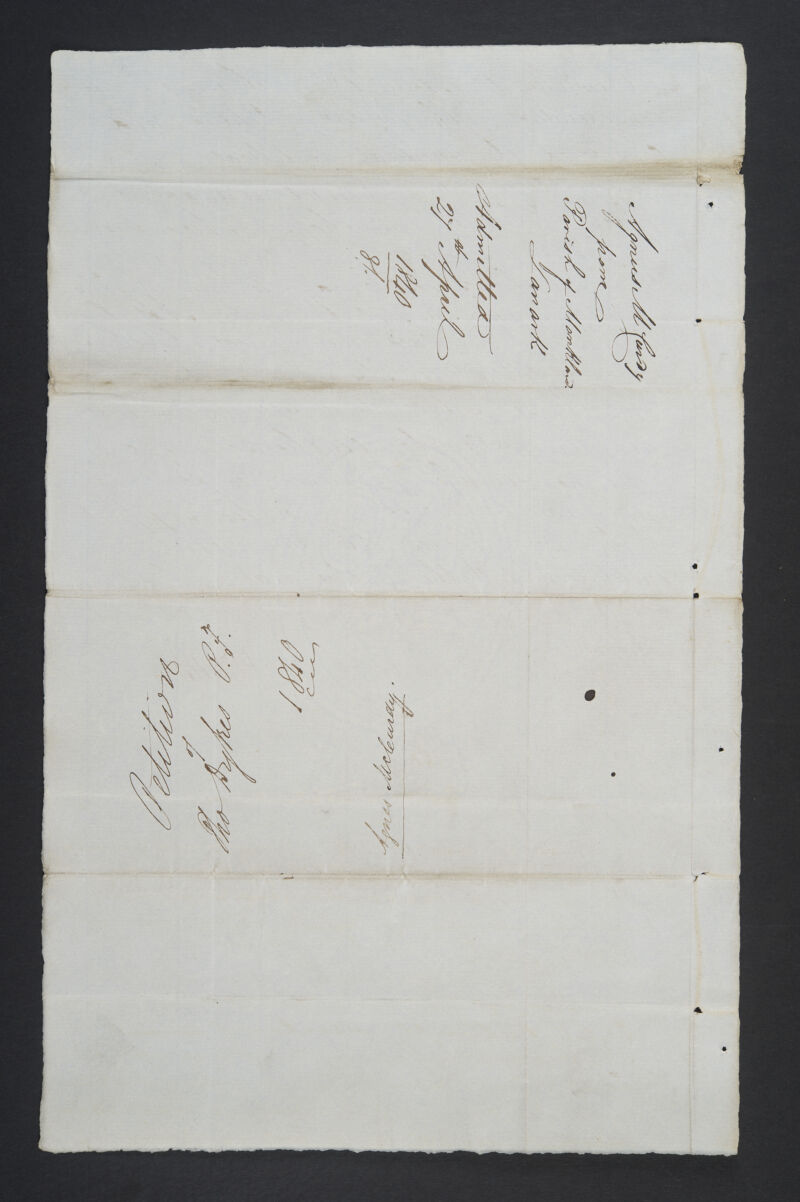 Agnus McCurdy
from
Parish of Monkland
Lanark
Admitted
27th April
1840
Petition
of
Tho Dykes P.F.
1840
Agnes McCurdy.